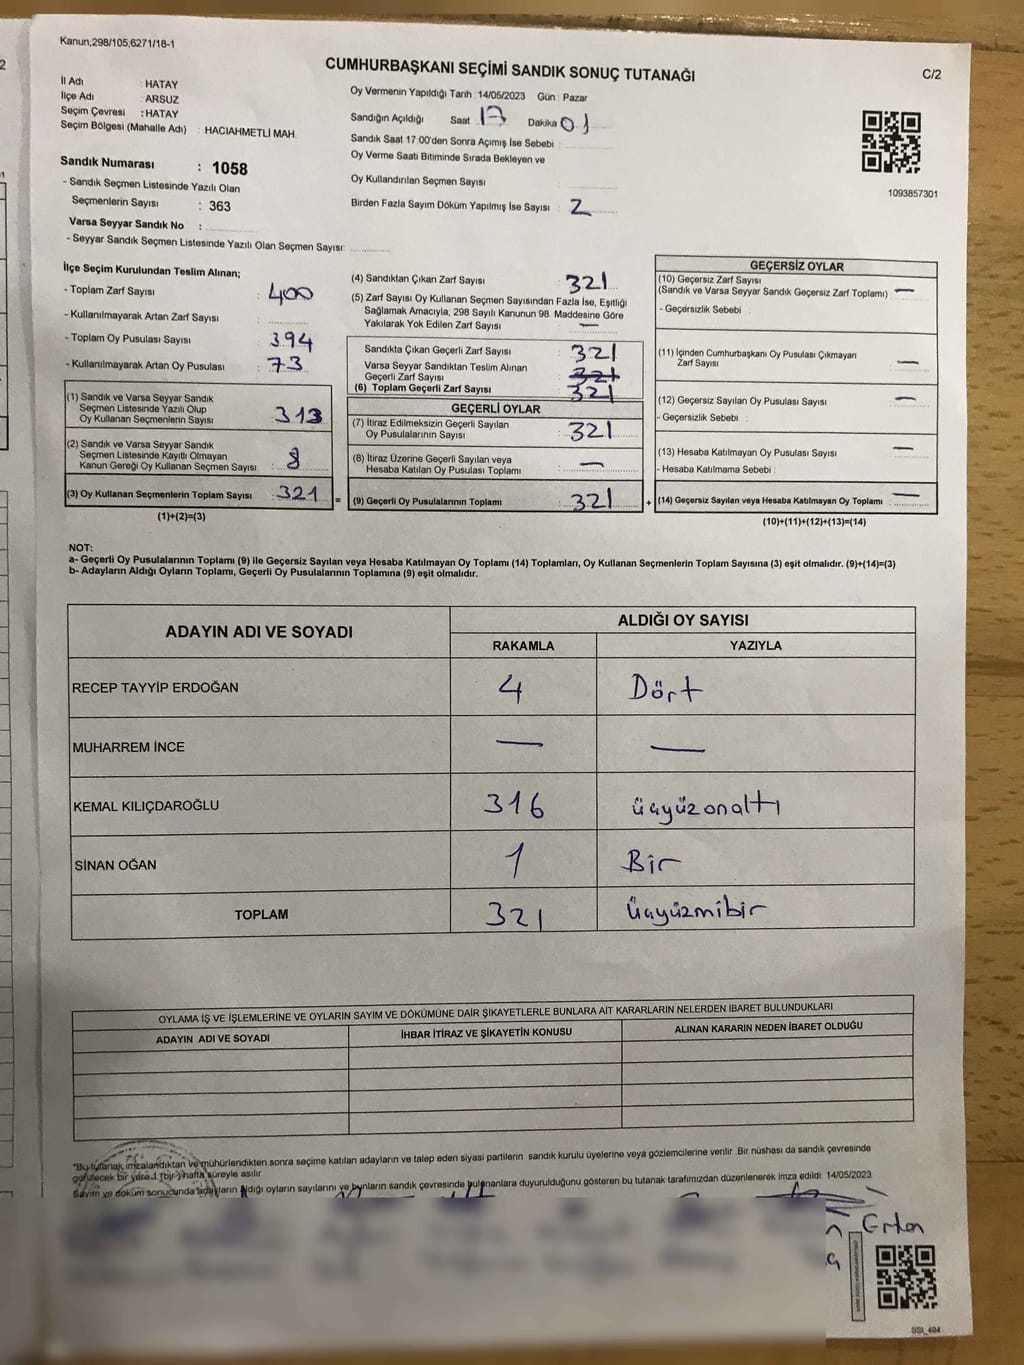 Kanun,298/105,6271/18-1
CUMHURBAŞKANI SEÇİMİ SANDIK SONUÇ TUTANAĞI
C/2
İl Adı : HATAY
İlçe Adı : ARSUZ
Seçim Çevresi : HATAY
Seçim Bölgesi (Mahalle Adı) : HACIAHMETLİ MAH.
Sandık Numarası : 1058
- Sandık Seçmen Listesinde Yazılı Olan
Seçmenlerin Sayısı : 363
Varsa Seyyar Sandık No :
- Seyyar Sandık Seçmen Listesinde Yazılı Olan Seçmen Sayısı:
Oy Vermenin Yapıldığı Tarih :14/05/2023 Gün : Pazar
Sandığın Açıldığı Saat 17 Dakika 01
Sandık Saat 17:00'den Sonra Açımış İse Sebebi :
Oy Verme Saati Bitiminde Sırada Bekleyen ve
Oy Kullandırılan Seçmen Sayısı :
Birden Fazla Sayım Döküm Yapılmış İse Sayısı : 2
1093857301
İlçe Seçim Kurulundan Teslim Alınan;
- Toplam Zarf Sayısı : 400
- Kullanılmayarak Artan Zarf Sayısı :
- Toplam Oy Pusulası Sayısı : 394
- Kullanılmayarak Artan Oy Pusulası : 73
(1) Sandık ve Varsa Seyyar Sandık
Seçmen Listesinde Yazılı Olup
Oy Kullanan Seçmenlerin Sayısı : 313
(2) Sandık ve Varsa Seyyar Sandık
Seçmen Listesinde Kayıtlı Olmayan
Kanun Gereği Oy Kullanan Seçmen Sayısı : 8
(3) Oy Kullanan Seçmenlerin Toplam Sayısı : 321 =
(1)+(2)=(3)
(4) Sandıktan Çıkan Zarf Sayısı : 321
(5) Zarf Sayısı Oy Kullanan Seçmen Sayısından Fazla İse, Eşitliği
Sağlamak Amacıyla, 298 Sayılı Kanunun 98. Maddesine Göre
Yakılarak Yok Edilen Zarf Sayısı : —
Sandıkta Çıkan Geçerli Zarf Sayısı : 321
Varsa Seyyar Sandıktan Teslim Alınan
Geçerli Zarf Sayısı : 321
(6) Toplam Geçerli Zarf Sayısı : 321
GEÇERLİ OYLAR
(7) İtiraz Edilmeksizin Geçerli Sayılan
Oy Pusulalarının Sayısı : 321
(8) İtiraz Üzerine Geçerli Sayılan veya
Hesaba Katılan Oy Pusulası Toplamı : —
(9) Geçerli Oy Pusulalarının Toplamı : 321 +
GEÇERSİZ OYLAR
(10) Geçersiz Zarf Sayısı
(Sandık ve Varsa Seyyar Sandık Geçersiz Zarf Toplamı) : —
- Geçersizlik Sebebi :
(11) İçinden Cumhurbaşkanı Oy Pusulası Çıkmayan
Zarf Sayısı : —
(12) Geçersiz Sayılan Oy Pusulası Sayısı : —
- Geçersizlik Sebebi :
(13) Hesaba Katılmayan Oy Pusulası Sayısı : —
- Hesaba Katılmama Sebebi :
(14) Geçersiz Sayılan veya Hesaba Katılmayan Oy Toplamı : —
(10)+(11)+(12)+(13)=(14)
NOT:
a- Geçerli Oy Pusulalarının Toplamı (9) ile Geçersiz Sayılan veya Hesaba Katılmayan Oy Toplamı (14) Toplamları, Oy Kullanan Seçmenlerin Toplam Sayısına (3) eşit olmalıdır. (9)+(14)=(3)
b- Adayların Aldığı Oyların Toplamı, Geçerli Oy Pusulalarının Toplamına (9) eşit olmalıdır.
ADAYIN ADI VE SOYADI ALDIĞI OY SAYISI
RAKAMLA YAZIYLA
RECEP TAYYİP ERDOĞAN 4 Dört
MUHARREM İNCE — —
KEMAL KILIÇDAROĞLU 316 üçyüzonaltı
SİNAN OĞAN 1 Bir
TOPLAM 321 Üçyüzmibir
OYLAMA İŞ VE İŞLEMLERİNE VE OYLARIN SAYIM VE DÖKÜMÜNE DAİR ŞİKAYETLERLE BUNLARA AİT KARARLARIN NELERDEN İBARET BULUNDUKLARI
ADAYIN ADI VE SOYADI İHBAR İTİRAZ VE ŞİKAYETİN KONUSU ALINAN KARARIN NEDEN İBARET OLDUĞU
*Bu tutanak, imzalandıktan ve mühürlendikten sonra seçime katılan adayların ve talep eden siyasi partilerin sandık kurulu üyelerine veya gözlemcilerine verilir. Bir nüshası da sandık çevresinde
görülecek bir yere 1 (bir) hafta süreyle asılır.
Sayım ve döküm sonucunda adayların aldığı oyların sayılarını ve bunların sandık çevresinde bulunanlara duyurulduğunu gösteren bu tutanak tarafımızdan düzenlenerek imza edildi. 14/05/2023